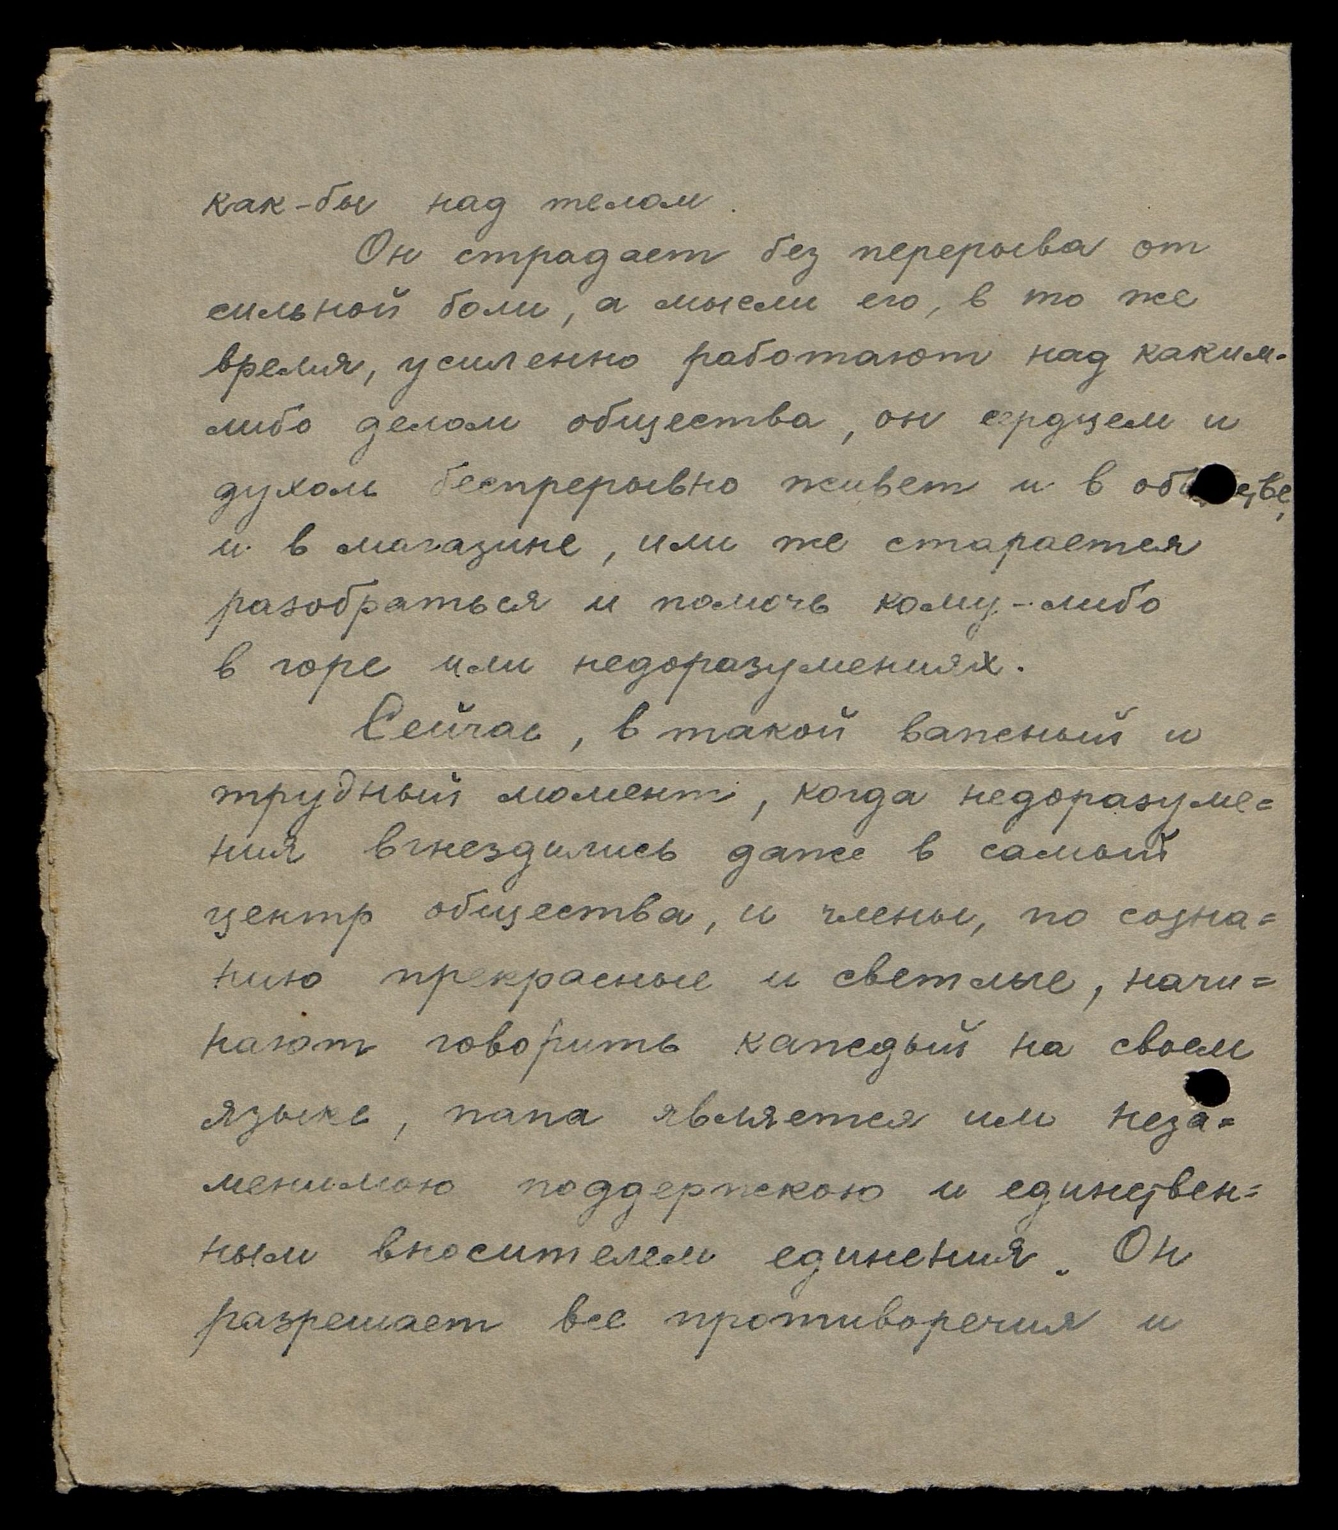 как-бы над телом.
Он страдает без перерыва от
сильной боли, а мысли его, в то же
время, усиленно работают над каким-
либо делом общества, он сердцем и
духом беспрерывно живет и в обществе,
и в магазине, или же старается
разобраться и помочь кому-либо
в горе или недоразумениях.
Сейчас, в такой важный и
трудный момент, когда недоразуме=
ния вгнездились даже в самый
центр общества, и члены, по созна=
нию прекрасные и светлые, начи=
нают говорить каждый на своем
языке, папа является им неза=
менимою поддержкою и единствен=
ным вносителем единения. Он
разрешает все противоречия и